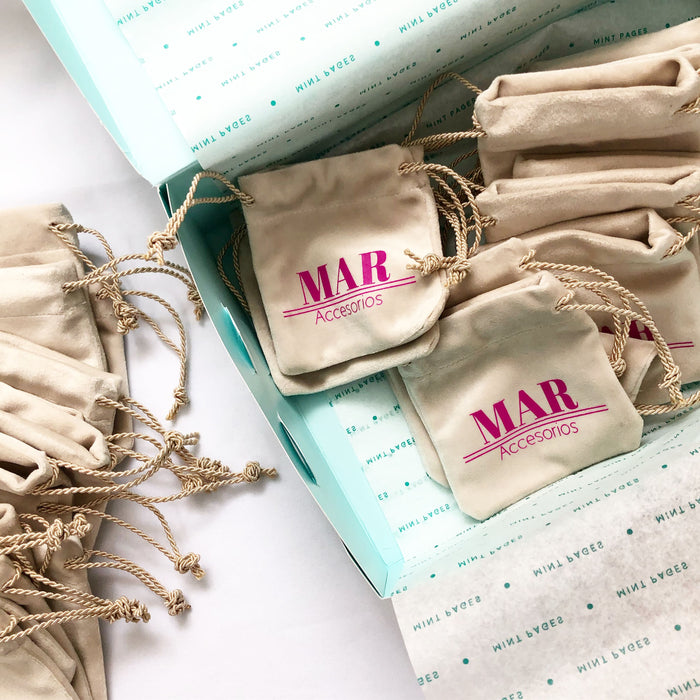 MINT PAGES
MINT PAGES
MINT PAGES
MINT PAGES
MINT PAGES
MAR
Accesorios
MAR
Accesorios
MINT PAGES
MINT PAGES
MINT PAGES
MINT PAGES
MINT PAGES
MINT PAGES
MINT PAGES
MINT PAGES